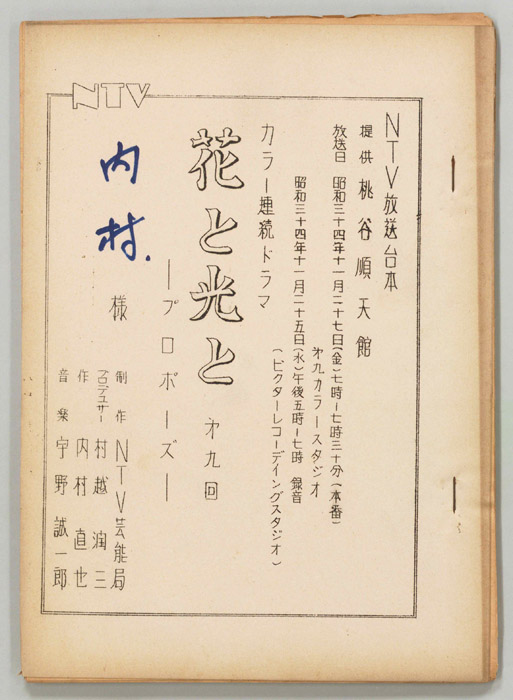 NTV
NTV放送台本
提供 桃谷順天館
放送日 昭和三十四年十一月二十七日(金)七時ー七時三十分(本番)
才九カラースタジオ
昭和三十四年十一月二十五日(水)午後五時ー七時 録音
(ビクターレコーディングスタジオ)
カラー連続ドラマ
花と光と 才九回
ープロポーズー
内村 様
制作 NTV芸能局
プロデューサー 村越潤三
作 内村直也
音楽 宇野誠一郎